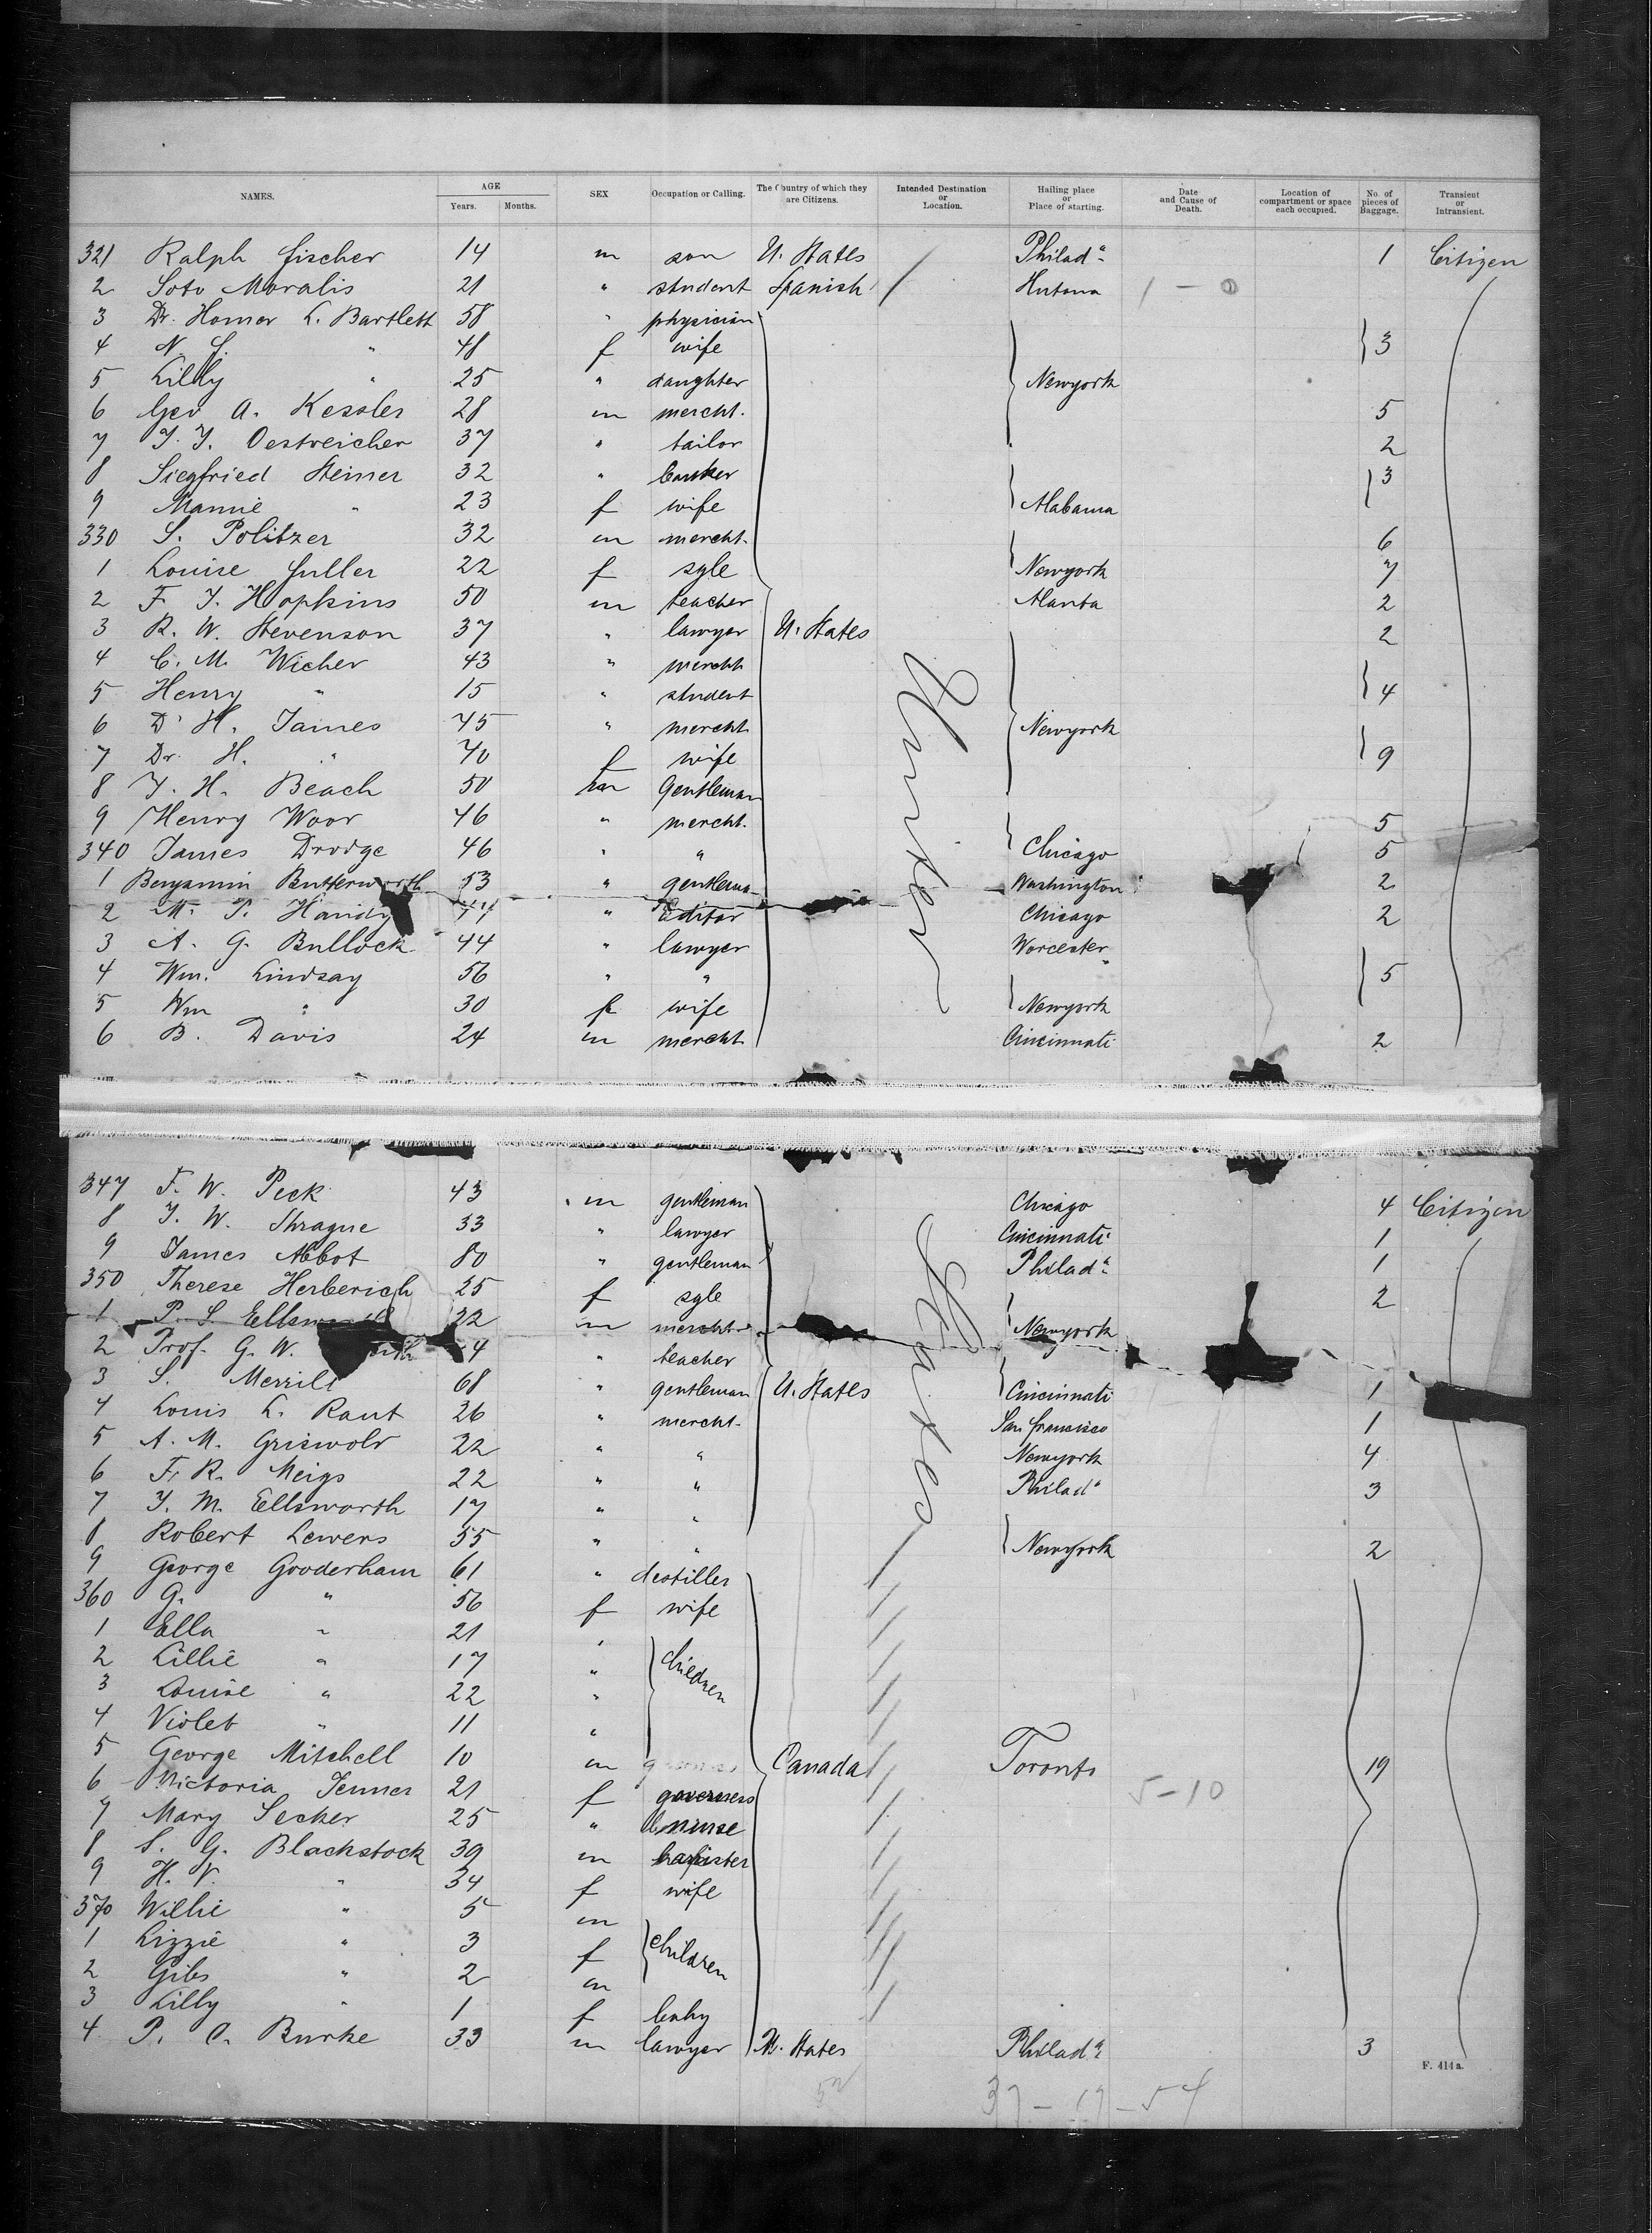 NAMES. AGE Years. Months. SEX Occupation or Calling. The Country of which they are Citizens. Intended Destination or Location. Hailing place or Place of starting. Date and Cause of Death. Location of compartment or space each occupied. No. of pieces of Baggage. Transient or Intransient.
321 Ralph Fischer 14 m son U. States Philada 1 Citizen
2 Soto Moralis 21 " student Spanish / 1 - 0
3 Dr. Homer L. Bartlett 58 " physician
4 N. S. " 48 f wife 3
5 Lilly " 25 " daughter Newyork
6 Geo A. Kessler 28 m mercht. 5
7 J. J. Oestreicher 37 " tailor 2
8 Siegfried Steiner 32 " banker 3
9 Mamie " 23 f wife Alabama
330 S. Politzer 32 m mercht. 6
1 Louise Fuller 22 f sgle Newyork 7
2 F. J. Hopkins 50 m teacher Atlanta 2
3 R. W. Stevenson 37 " lawyer U. States 2
4 C. M. Wicher 43 " mercht
5 Henry " 15 " student 4
6 D. H. James 45 " mercht Newyork
7 Dr. H. " 40 f wife 9
8 J. H. Beach 50 m Gentleman
9 Henry Woor 46 " mercht. 5
340 James Drodge 46 " " Chicago 5
1 Benjamin Butterworth 53 " gentleman Washington 2
2 M. P. Handy " Editor Chicago 2
3 A. G. Bullock 44 " lawyer Worcester
4 Wm. Lindsay 56 " " 5
5 Wm " 30 f wife Newyork
6 B. Davis 24 m mercht Cincinnati 2
New York
347 F. W. Peck 43 m gentleman Chicago 4 Citizen
8 J. W. Shrague 33 " lawyer Cincinnati 1
9 James Abbot 80 " gentleman Philada 1
350 Therese Herberich 25 f sgle 2
1 P. S. Ellsworth 22 m mercht. Newyork
2 Prof. G. W. 4 " teacher
3 S. Merrill 68 " gentleman U. States Cincinnati 1
4 Louis L. Raut 26 " mercht. San Francisco 1
5 A. M. Griswold 22 " " Newyork 4
6 F. R. Meigs 22 " " Philada 3
7 J. M. Ellsworth 17 " "
8 Robert Lewers 55 " " Newyork 2
9 George Gooderham 61 " destiller
360 G. " 56 f wife
1 Ella " 21 "
2 Lillie " 17 " children
3 Louise " 22 "
4 Violet " 11 "
5 George Mitchell 10 m Canada Toronto 19
6 Victoria Jenner 21 f governess 5-10
7 Mary Secker 25 " nurse
8 S. G. Blackstock 39 m barister
9 H. V. " 34 f wife
370 Willie " 5 m
1 Lizzie " 3 f children
2 Gibs " 2 m
3 Lilly " 1 f baby
4 P. C. Burke 33 m lawyer U. States Philada 3
F. 414 a.
52 37 - 17 - 54